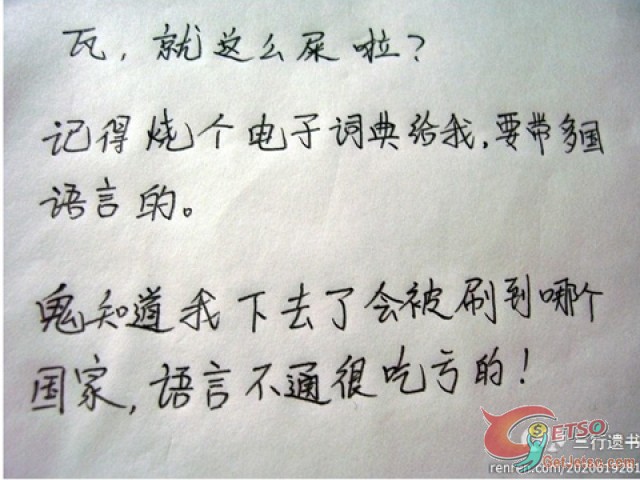 瓦，就这么屎啦？
记得烧个电子词典给我，要带多国
语言的。
鬼知道我下去了会被刷到哪个
国家，语言不通很吃亏的！
GETSO
Get.Jetso.com
三行遗书
renren.com/2020619281